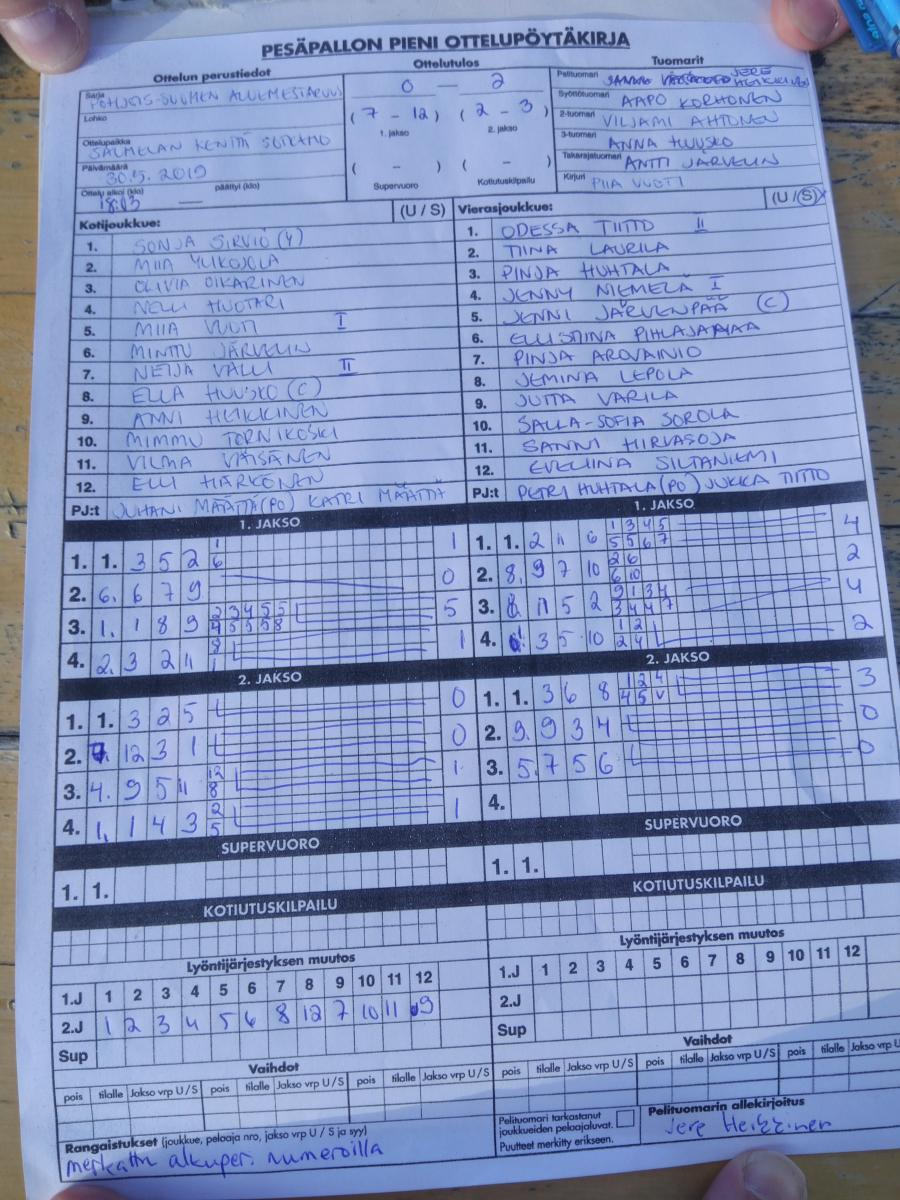 PESÄPALLON PIENI OTTELUPÖYTÄKIRJA
Ottelun perustiedot
Ottelutulos
Tuomarit
Sarja POHJOIS-SUOMEN ALUEMESTARUUS
Lohko
Ottelupaikka SALMELAN KENTTÄ SOTKAMO
Päivämäärä 30.5.2019
Ottelu alkoi (klo) 18:03 — päättyi (klo)
0 — 2
(7 - 12) (2 - 3)
1. jakso 2. jakso
( - ) ( - )
Supervuoro Kotiutuskilpailu
Pelituomari JERE HEIKKINEN
Syöttötuomari AAPO KORHONEN
2-tuomari VILJAMI AHTONEN
3-tuomari ANNA HUUSKO
Takarajatuomari ANTTI JÄRVELIN
Kirjuri PIIA VUOTI
Kotijoukkue: (U / S)
1. SONJA SIRVIÖ (Y)
2. MIIA YLIKOJOLA
3. OLIVIA OIKARINEN
4. NELLI HUOTARI
5. MIIA VUOTI I
6. MINTTU JÄRVELIN
7. NEIJA VALLI II
8. ELLA HUUSKO (C)
9. ANNI HEIKKINEN
10. MIMMU TORNIKOSKI
11. VILMA VÄISÄNEN
12. ELLI HÄRKÖNEN
PJ:t JUHANI MÄÄTTÄ (PO) KATRI MÄÄTTÄ
Vierasjoukkue: (U / S)
1. ODESSA TIITTO II
2. TIINA LAURILA
3. PINJA HUHTALA
4. JENNY NIEMELÄ I
5. JENNI JÄRVENPÄÄ (C)
6. ELLISTIINA PIHLAJAMAA
7. PINJA AROVAINIO
8. JEMINA LEPOLA
9. JUTTA VARILA
10. SALLA-SOFIA SOROLA
11. SANNI HIRVASOJA
12. EVELIINA SILTANIEMI
PJ:t PETRI HUHTALA (PO) JUKKA TIITTO
1. JAKSO
1. 1. 3 5 2 1 6 1
2. 6. 6 7 9 0
3. 1. 1 8 9 2 3 4 5 5 4 5 5 5 8 5
4. 2. 3 2 11 8 1 1
2. JAKSO
1. 1. 3 2 5 0
2. 7. 12 3 1 0
3. 4. 9 5 11 12 8 1
4. 1. 1 4 3 2 5 1
SUPERVUORO
1. 1.
KOTIUTUSKILPAILU
1. JAKSO
1. 1. 2 11 6 1 3 4 5 5 5 6 7 4
2. 8. 9 7 10 2 6 6 10 2
3. 8. 11 5 2 9 1 3 4 3 4 4 7 4
4. 3 5 10 1 2 2 4 2
2. JAKSO
1. 1. 3 6 8 1 2 4 4 5 V 3
2. 9. 9 3 4 0
3. 5. 7 5 6 0
4.
SUPERVUORO
1. 1.
KOTIUTUSKILPAILU
Lyöntijärjestyksen muutos
1.J 1 2 3 4 5 6 7 8 9 10 11 12
2.J 1 2 3 4 5 6 8 12 7 10 11 9
Sup
Vaihdot
pois tilalle Jakso vrp U / S pois tilalle Jakso vrp U / S
Lyöntijärjestyksen muutos
1.J 1 2 3 4 5 6 7 8 9 10 11 12
2.J
Sup
Vaihdot
pois tilalle Jakso vrp U / S pois tilalle Jakso vrp U / S pois tilalle Jakso vrp U / S
pois tilalle Jakso vrp U / S
Rangaistukset (joukkue, pelaaja nro, jakso vrp U / S ja syy)
merkattu alkuper. numeroilla
Pelituomari tarkastanut joukkueiden pelaajaluvat.
Puutteet merkitty erikseen.
Pelituomarin allekirjoitus
Jere Heikkinen